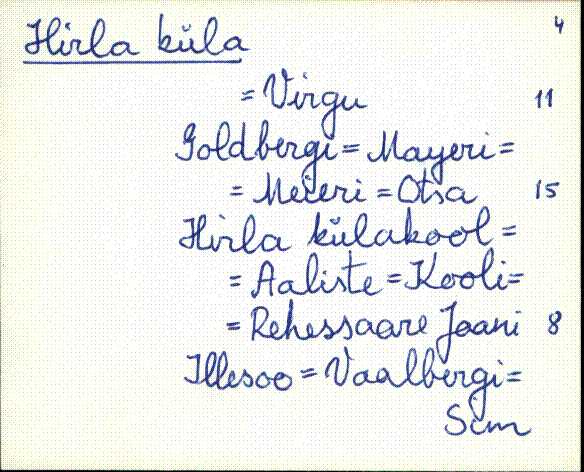 Hirla küla 4
= Virgu 11
Goldbergi = Mayeri =
= Meieri = Otsa 15
Hirla külakool =
= Aaliste = Kooli =
= Rehessaare Jaani 8
Illesoo = Vaalbergi =
Sim